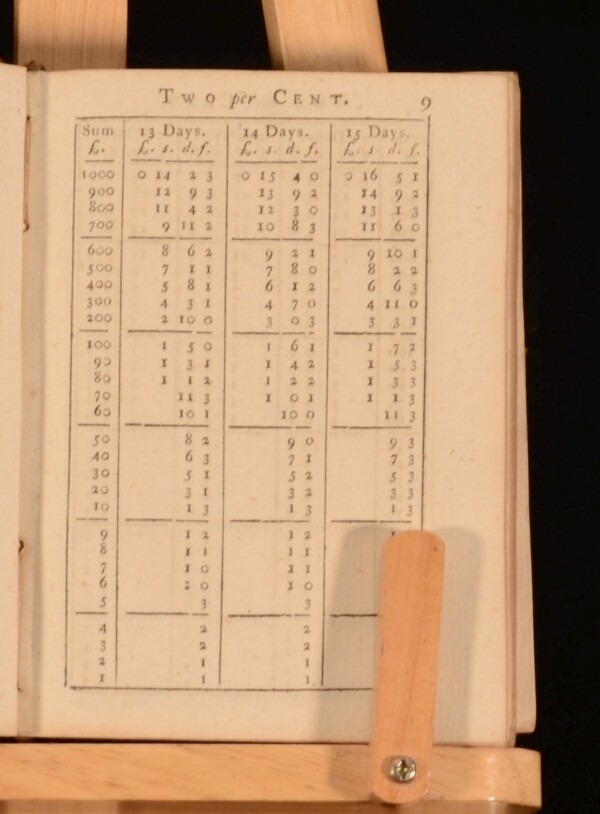 TWO per CENT. 9
Sum 13 Days. 14 Days. 15 Days.
£. £. s. d. f. £. s. d. f. £. s. d. f.
1000 0 14 2 3 0 15 4 0 0 16 5 1
900 12 9 3 13 9 2 14 9 2
800 11 4 2 12 3 0 13 1 3
700 9 11 2 10 8 3 11 6 0
600 8 6 2 9 2 1 9 10 1
500 7 1 1 7 8 0 8 2 2
400 5 8 1 6 1 2 6 6 3
300 4 3 1 4 7 0 4 11 0
200 2 10 0 3 0 3 3 3 1
100 1 5 0 1 6 1 1 7 2
90 1 3 1 1 4 2 1 5 3
80 1 1 2 1 2 2 1 3 3
70 11 3 1 0 1 1 1 3
60 10 1 10 0 11 3
50 8 2 9 0 9 3
40 6 3 7 1 7 3
30 5 1 5 2 5 3
20 3 1 3 2 3 3
10 1 3 1 3 1 3
9 1 2 1 2
8 1 1 1 1
7 1 0 1 1
6 1 0 1 0
5 3 3
4 2 2
3 2 2
2 1 1
1 1 1